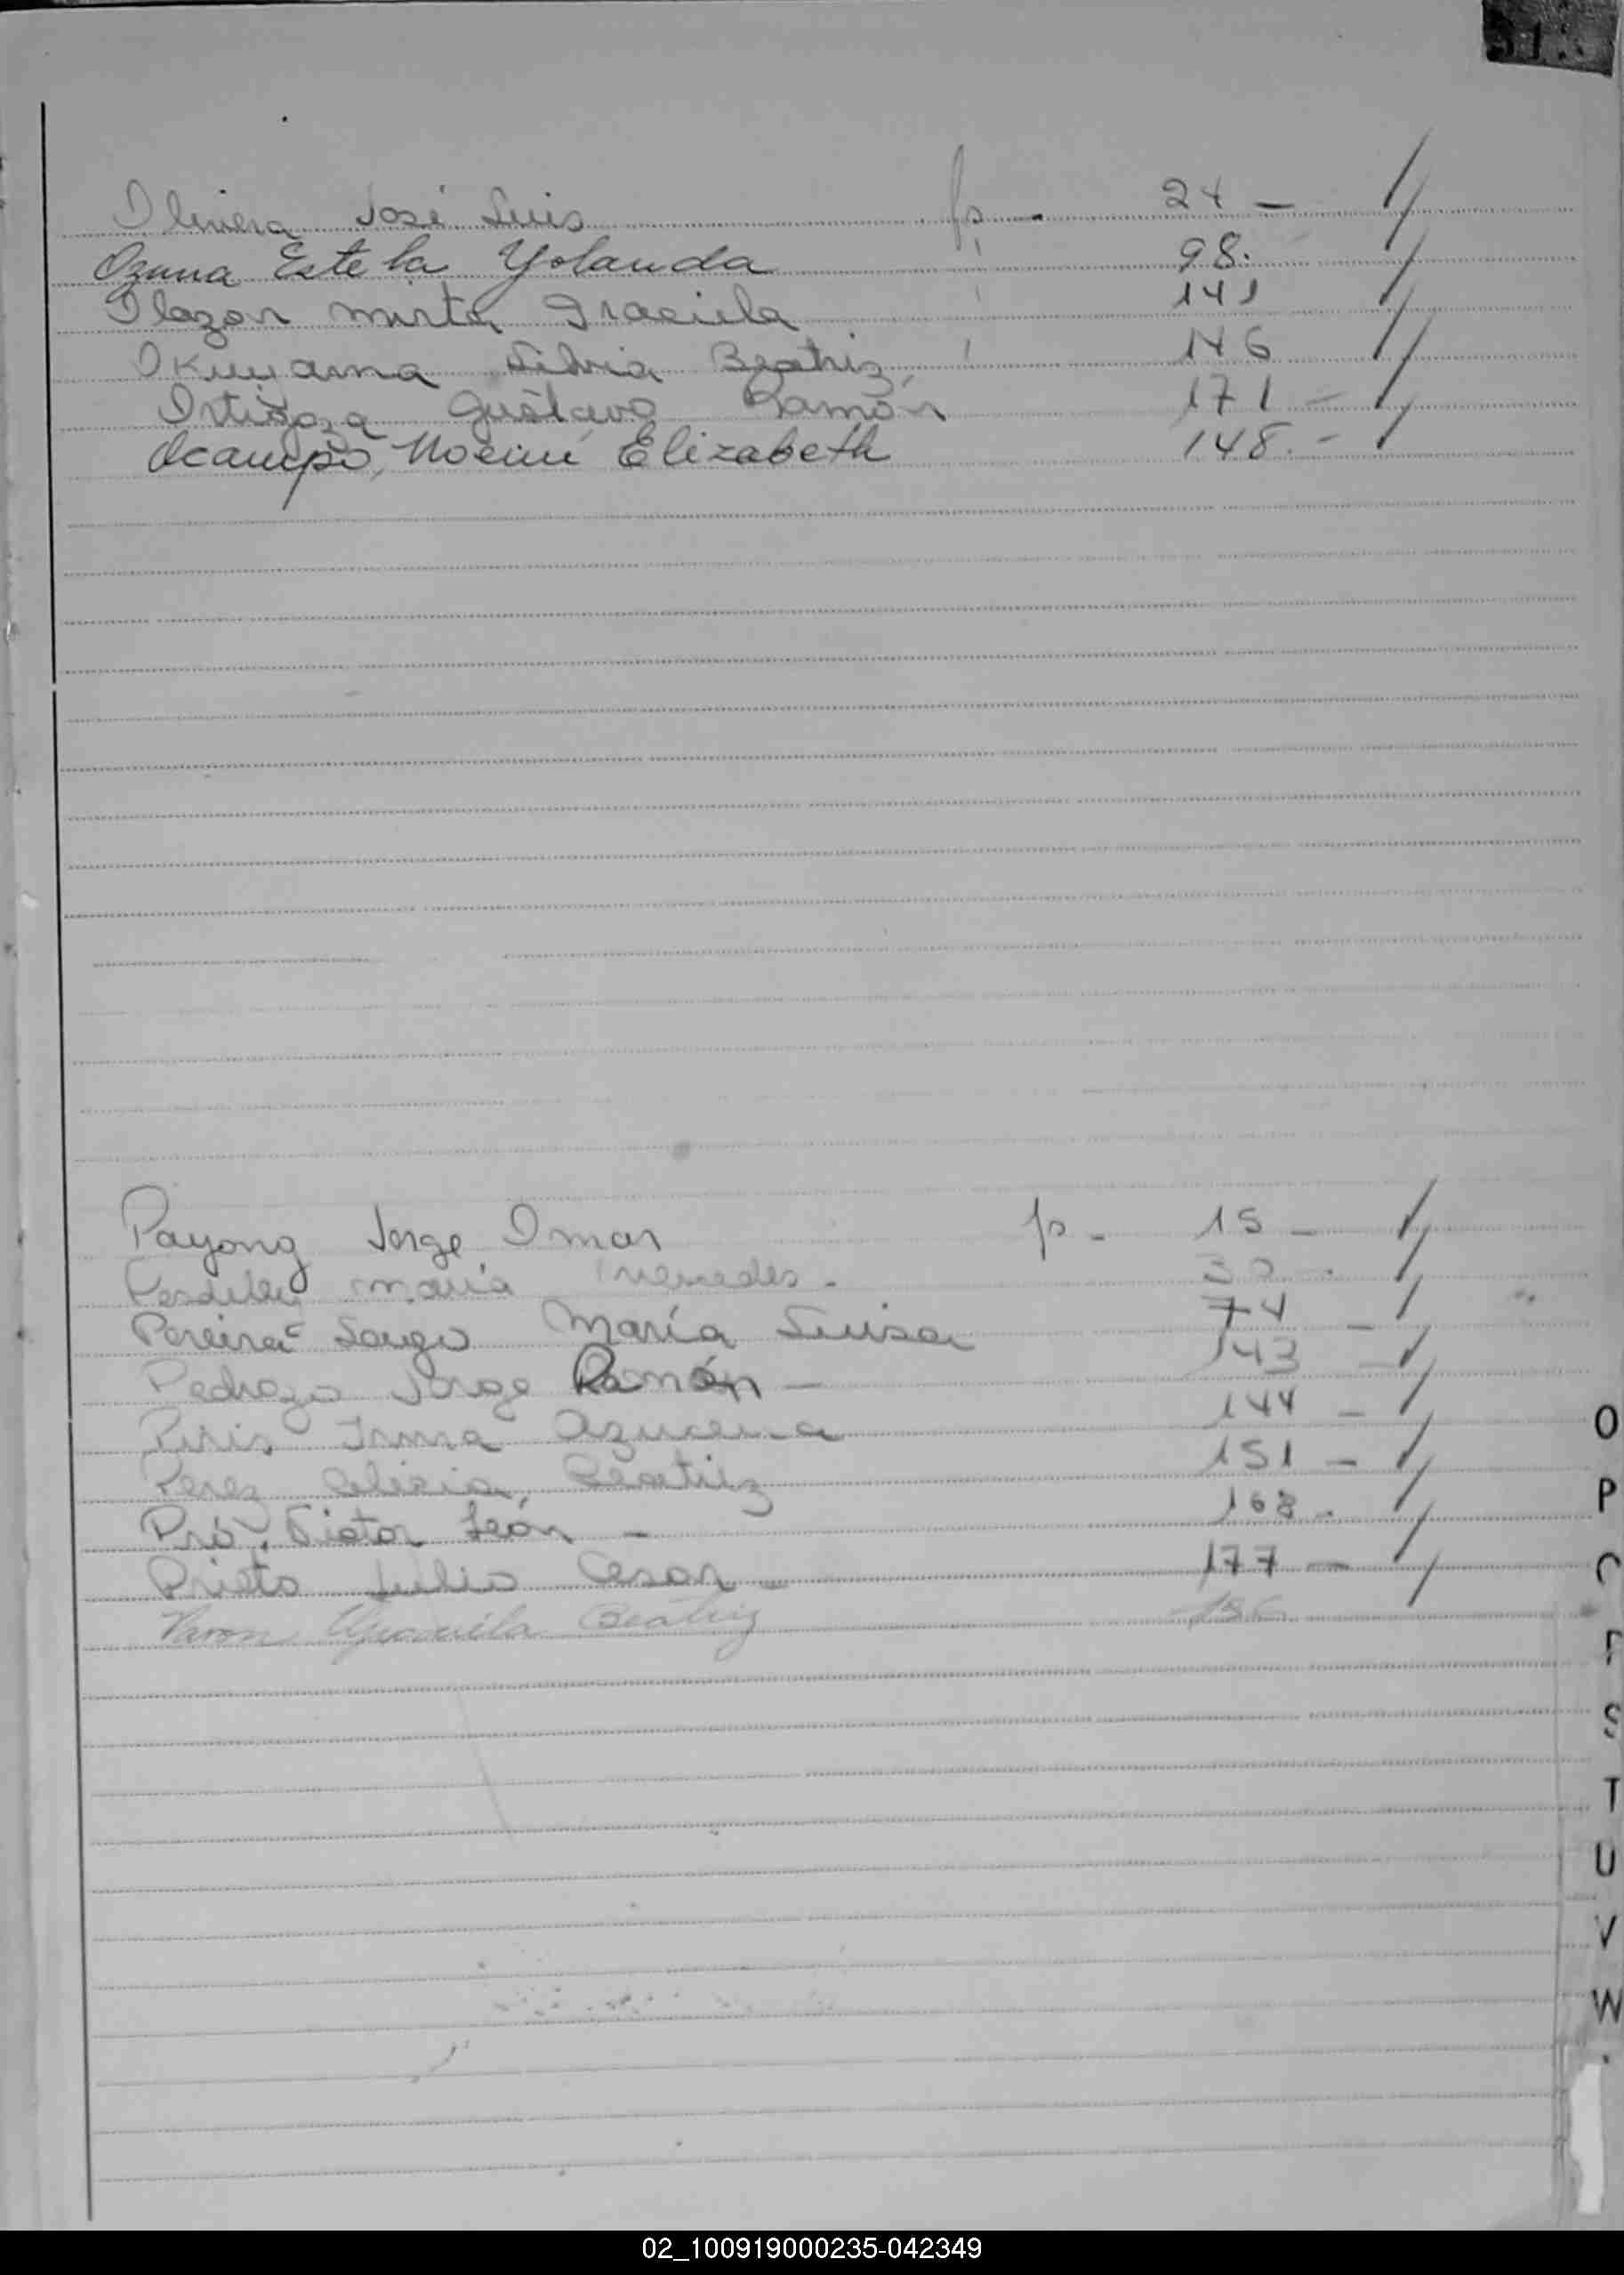 Olivera José Luis fs - 24 -
Ozuna Estela Yolanda 98.
Olazar Mirta Graciela 141
Okuyama Silvia Beatriz 146
Ortigoza Gustavo Ramón 171 -
Ocampo, Noemí Elizabeth 148. -
Payong Jorge Omar fs - 15 -
María Mercedes -
Pereira Luisa María 74 -
Pedrozo Jorge Ramón - 143 -
Piris Irma Azucena 144 -
Perez Beatriz 151 -
Pró, Victor León - 168 -
Prieto Julio Cesar - 177 -
Graciela Beatriz
O
P
S
T
U
V
W
02_100919000235-042349